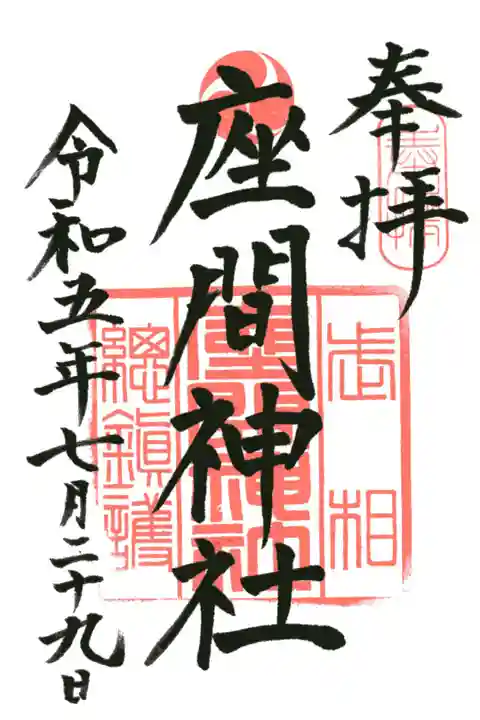 奉拝
座間神社
令和五年七月二十九日
武相
座間神社
総鎮護